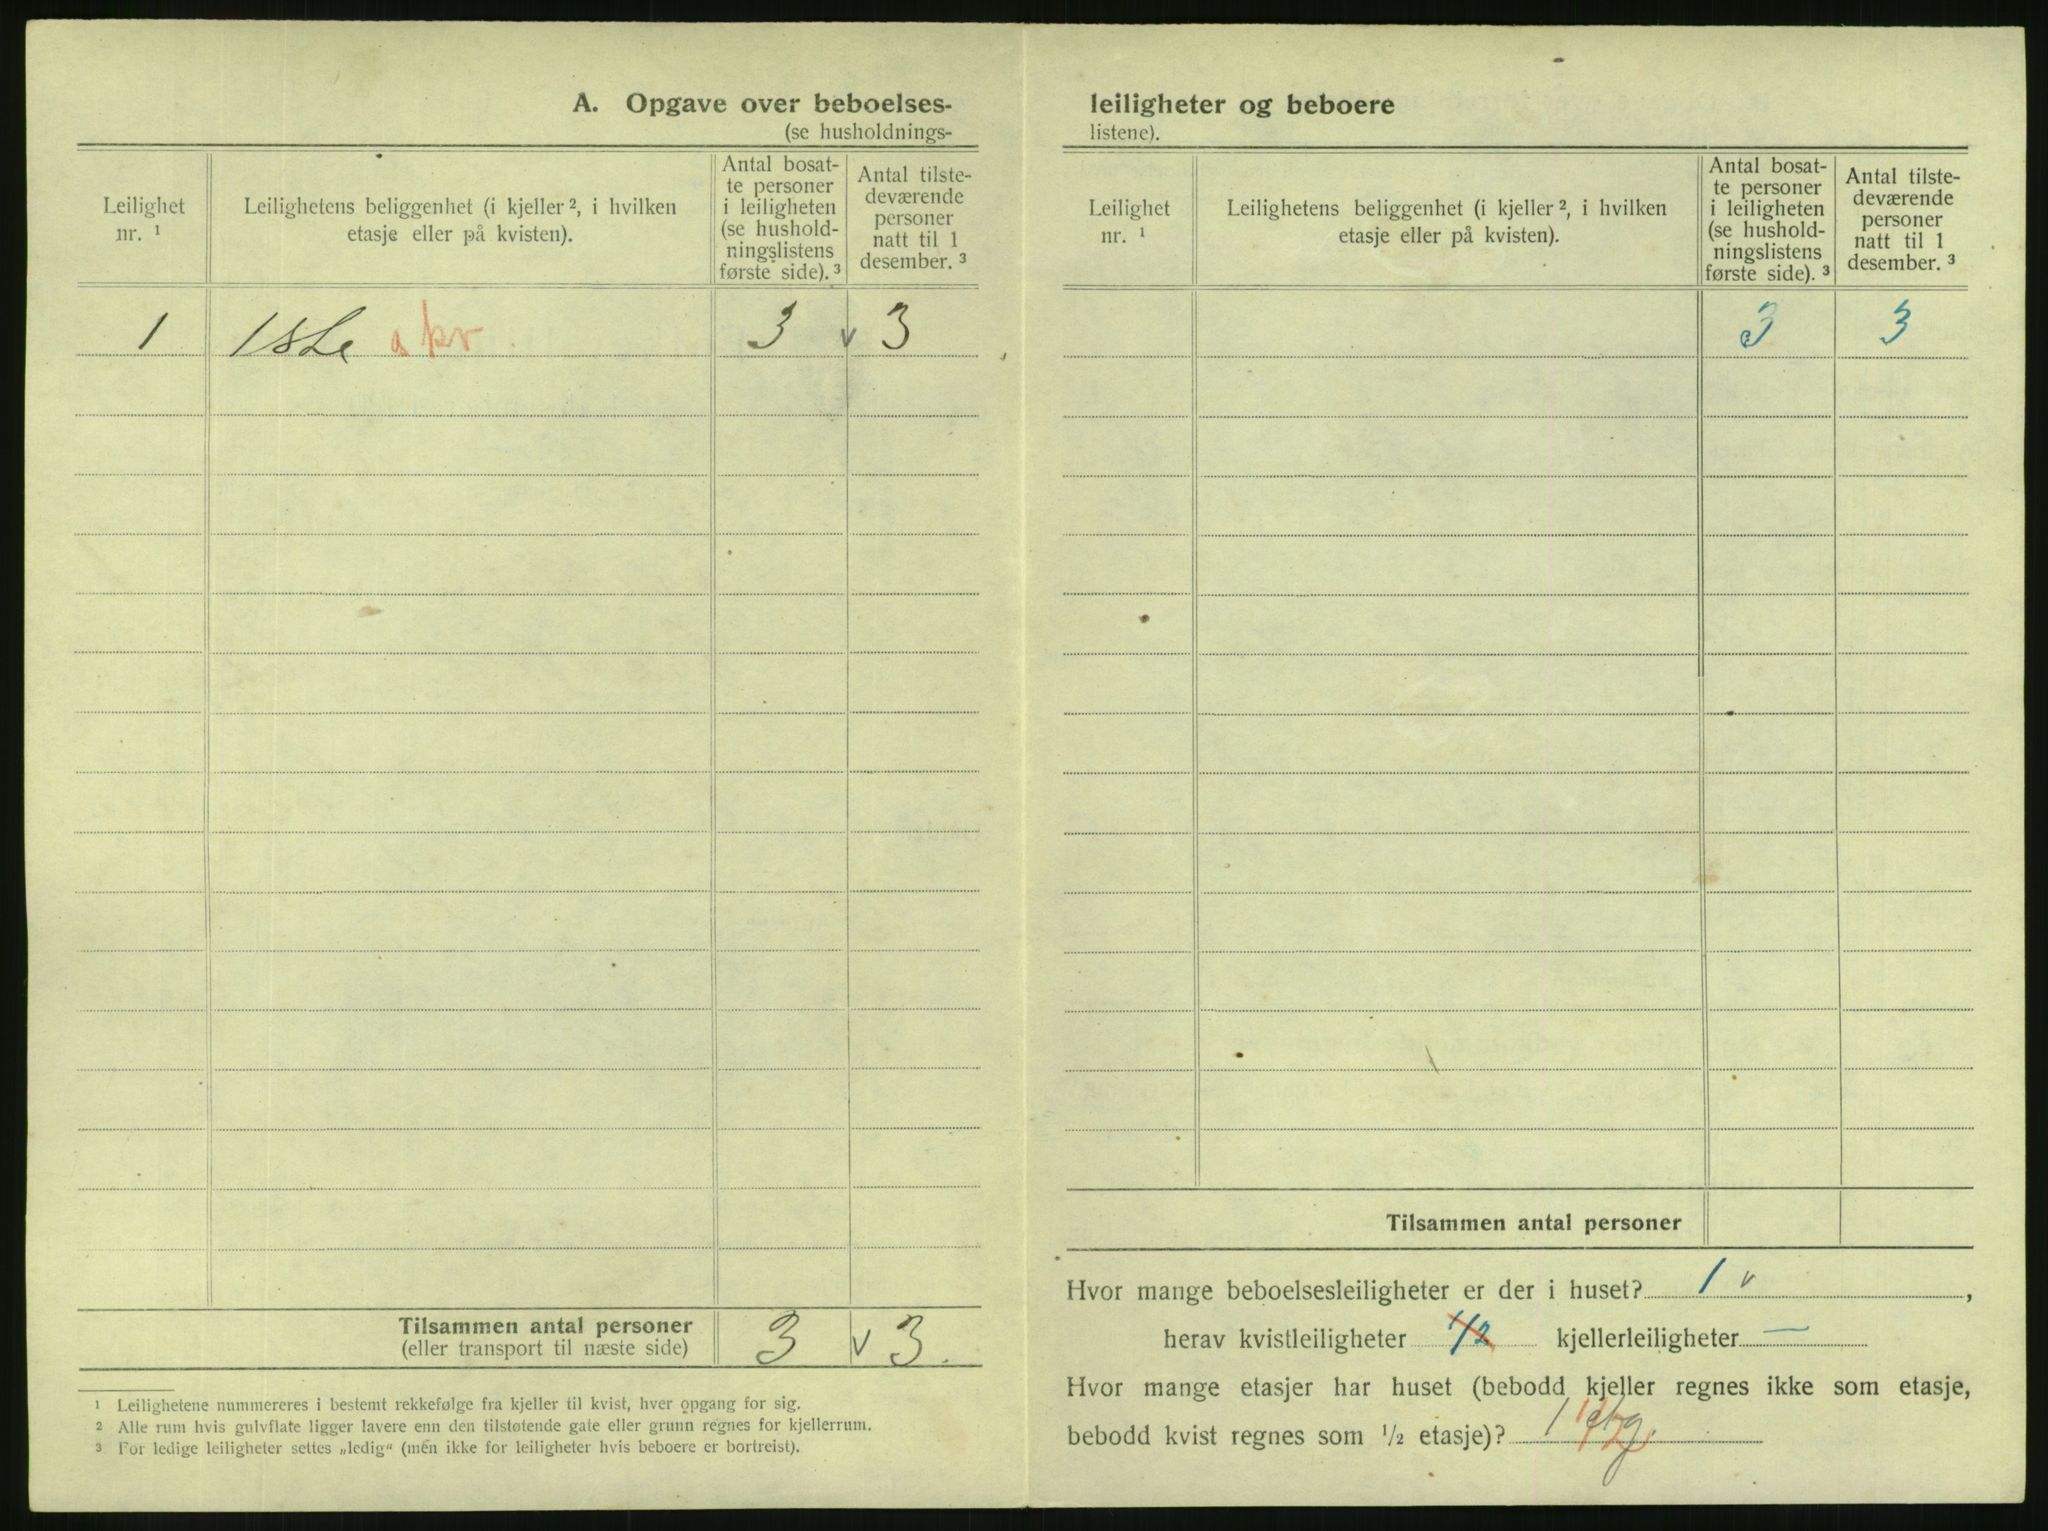 A. Opgave over beboelses-
(se husholdnings-
Leilighet nr. ¹
Leilighetens beliggenhet (i kjeller ², i hvilken
etasje eller på kvisten).
Antal bosat-
te personer
i leiligheten
(se hushold-
ningslistens
første side). ³
Antal tilste-
deværende
personer
natt til 1
desember. ³
1 1ste o kv. 3 v 3
Tilsammen antal personer
(eller transport til næste side)
3 v 3.
¹ Leilighetene nummereres i bestemt rekkefølge fra kjeller til kvist, hver opgang for sig.
² Alle rum hvis gulvflate ligger lavere enn den tilstøtende gate eller grunn regnes for kjellerrum.
³ For ledige leiligheter settes „ledig“ (men ikke for leiligheter hvis beboere er bortreist).
leiligheter og beboere
listene).
Leilighet nr. ¹
Leilighetens beliggenhet (i kjeller ², i hvilken
etasje eller på kvisten).
Antal bosat-
te personer
i leiligheten
(se hushold-
ningslistens
første side). ³
Antal tilste-
deværende
personer
natt til 1
desember. ³
3 3
Tilsammen antal personer
Hvor mange beboelsesleiligheter er der i huset? 1 v ,
herav kvistleiligheter 1/2 kjellerleiligheter —
Hvor mange etasjer har huset (bebodd kjeller regnes ikke som etasje,
bebodd kvist regnes som ½ etasje)? 1 etg.